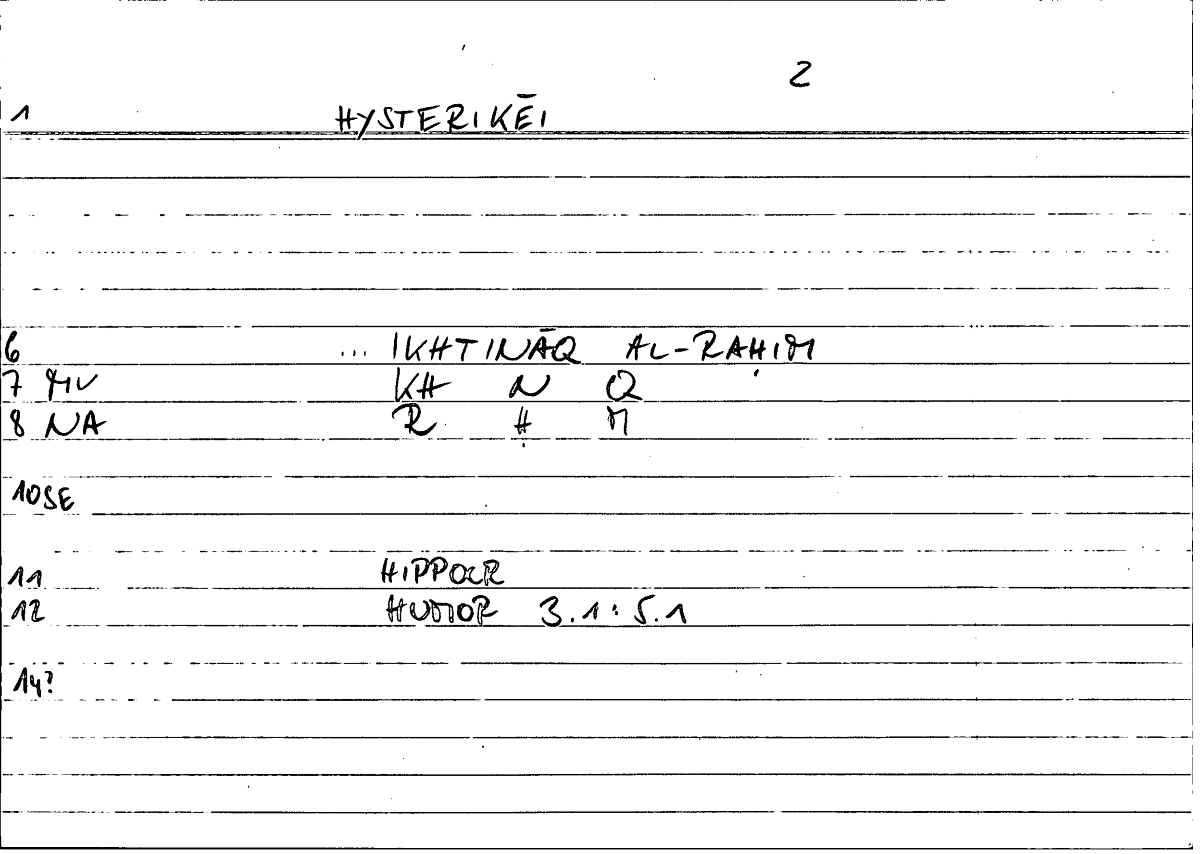 2
1 HYSTERIKĒI
6 ... IKHTINĀQ AL-RAḤIM
7 MV KH N Q
8 NA R Ḥ M
10 SE
11 HIPPOCR
12 HUMOR 3.1:5.1
14?